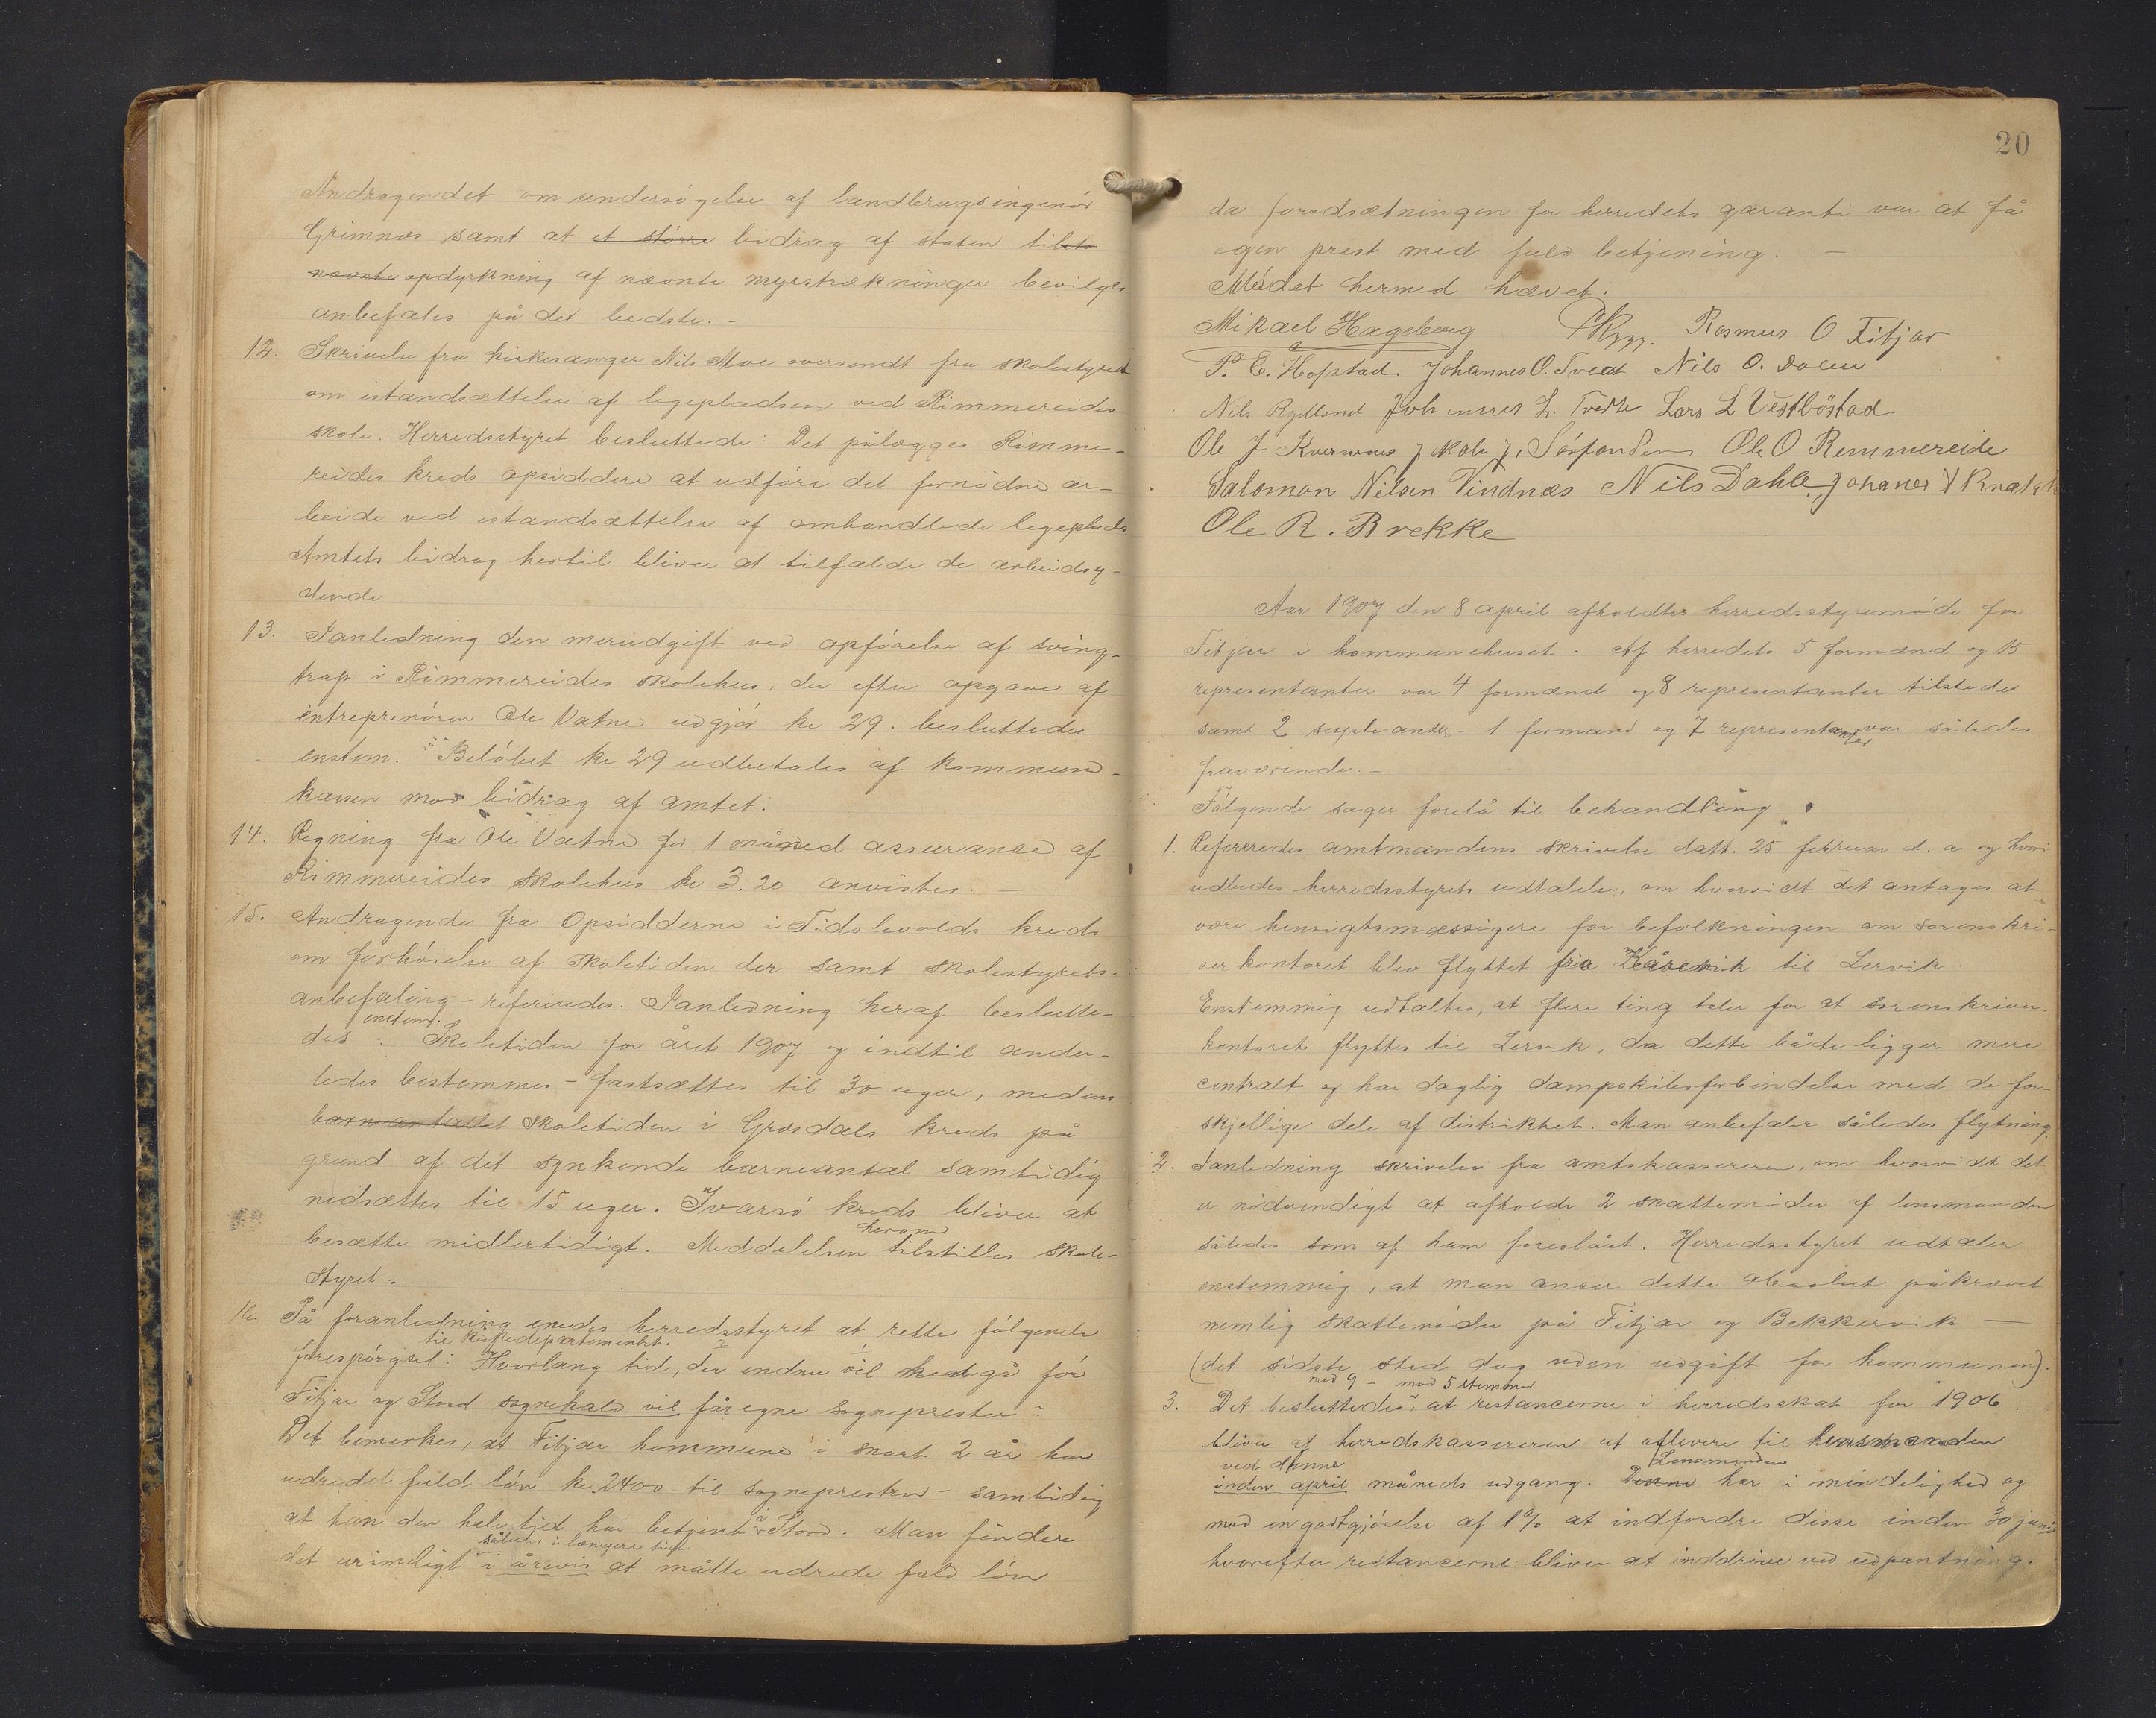 Andragendet om undersøgelse af landbrugsingeniør
Grimnes samt at et større bidrag af staten til
nævnte opdyrkning af nævnte myrstrækninger bevilges
anbefales på det bedste. -
12. Skrivelse fra kirkesanger Nils Moe oversendt fra skolestyret
om istandsættelse af legepladsen ved Rimmereides
skole. Herredsstyret besluttede: Det pålægges Rimme-
reides kreds opsiddere at udføre det fornødne ar-
beide ved istandsættelse af omhandlede legeplads.
Amtets bidrag hertil bliver at tilfalde de arbeidsy-
dende
13. Ianledning den merudgift ved opførelse af sving-
trap i Rimmereides skolehus, der efter opgave af
entreprenøren Ole Vatne udgjør kr 29. besluttedes
enstem. Beløbet kr 29 udbetales af kommune-
kassen mod bidrag af amtet.
14. Regning fra Ole Vatne for 1 måned assurance af
Rimmereides skolehus kr 3.20 anvistes. -
15. Andragende fra Opsidderne i Tislevolds kreds
om forhøielse af skoletiden der samt skolestyrets
anbefaling - refereredes. Ianledning heraf beslutte-
enstem.
des : Skoletiden for året 1907 og indtil ander-
ledes bestemmes - fastsættes til 30 uger, medens
barneantallet skoletiden i Grosdals kreds på
grund af det synkende barneantal samtidig
nedsættes til 15 uger. Ivarsø kreds bliver at
herom
besætte midlertidigt. Meddelelsen tilstilles skole-
styret.
16. På foranledning enedes herredsstyret at rette følgende
til kirkedepartementet.
forespørgsel: Hvorlang tid, der endnu vil medgå før
Fitjar og Stord sognekald vil får egne sogneprester?
Det bemerkes, at Fitjar kommune i snart 2 år har
udredet fuld løn kr. 2400 til sognepresten - samtidig
at han den hele tid har betjent Stord. Man finder
således i længere tid
det urimeligt i årevis at måtte udrede fuld løn
20
da forudsætningen for herredets garanti var at få
egen prest med fuld betjening. -
Mødet hermed hævet.
Mikael Hageberg Rasmus O Fitjar
P. E. Hofstad Johannes O. Tvedt Nils O. Dalen
Nils Rydland Johannes L. Tvedte Lars L Vestbøstad
Ole J Kvernenes Jakob J. Sørfonden Ole O Remmereide
Salomon Nilsen Vindnæs Nils Dahle, Johanes
Ole R. Brekke
Aar 1907 den 8 april afholdtes herredsstyremøde for
Fitjar i kommunehuset. Af herredets 5 formænd og 15
representanter var 4 formænd og 8 representanter tilstede
samt 2 supleanter. 1 formand og 7 representanter var således
fraværende. -
Følgende sager forelå til behandling.
1. Refereredes amtmandens skrivelse datt. 25 februar d. a og hvori
udbedes herredsstyrets udtalelse, om hvorvidt det antages at
være hensigtsmæssigere for befolkningen om sorenskri-
verkontoret blev flyttet fra Kårevik til Lervik.
Enstemmig udtaltes, at flere ting taler for at sorenskriver-
kontoret flyttes til Lervik, da dette både ligger mere
centralt og har daglig dampskibsforbindelse med de for-
skjellige dele af distriktet. Man anbefaler således flytning.
2. Ianledning skrivelse fra amtskassereren, om hvorvidt det
er nødvendigt at afholde 2 skattemøder af lensmanden
således som af ham foreslået. Herredsstyret udtaler
enstemmig, at man anser dette absolut påkrævet
nemlig skattemøder på Fitjar og Bekkervik -
(det sidste sted dog uden udgift for kommunen).
med 9 - mod 5 stemmer
3. Det besluttedes at restancerne i herredsskat for 1906
bliver af herredskassereren at aflevere til lensmanden
ved denne Lensmanden
inden april måneds udgang. Denne har i mindelighed og
mod en godtgjørelse af 1 % at indfordre disse inden 30 juni
hvorefter restancerne bliver at inddrive ved udpantning.